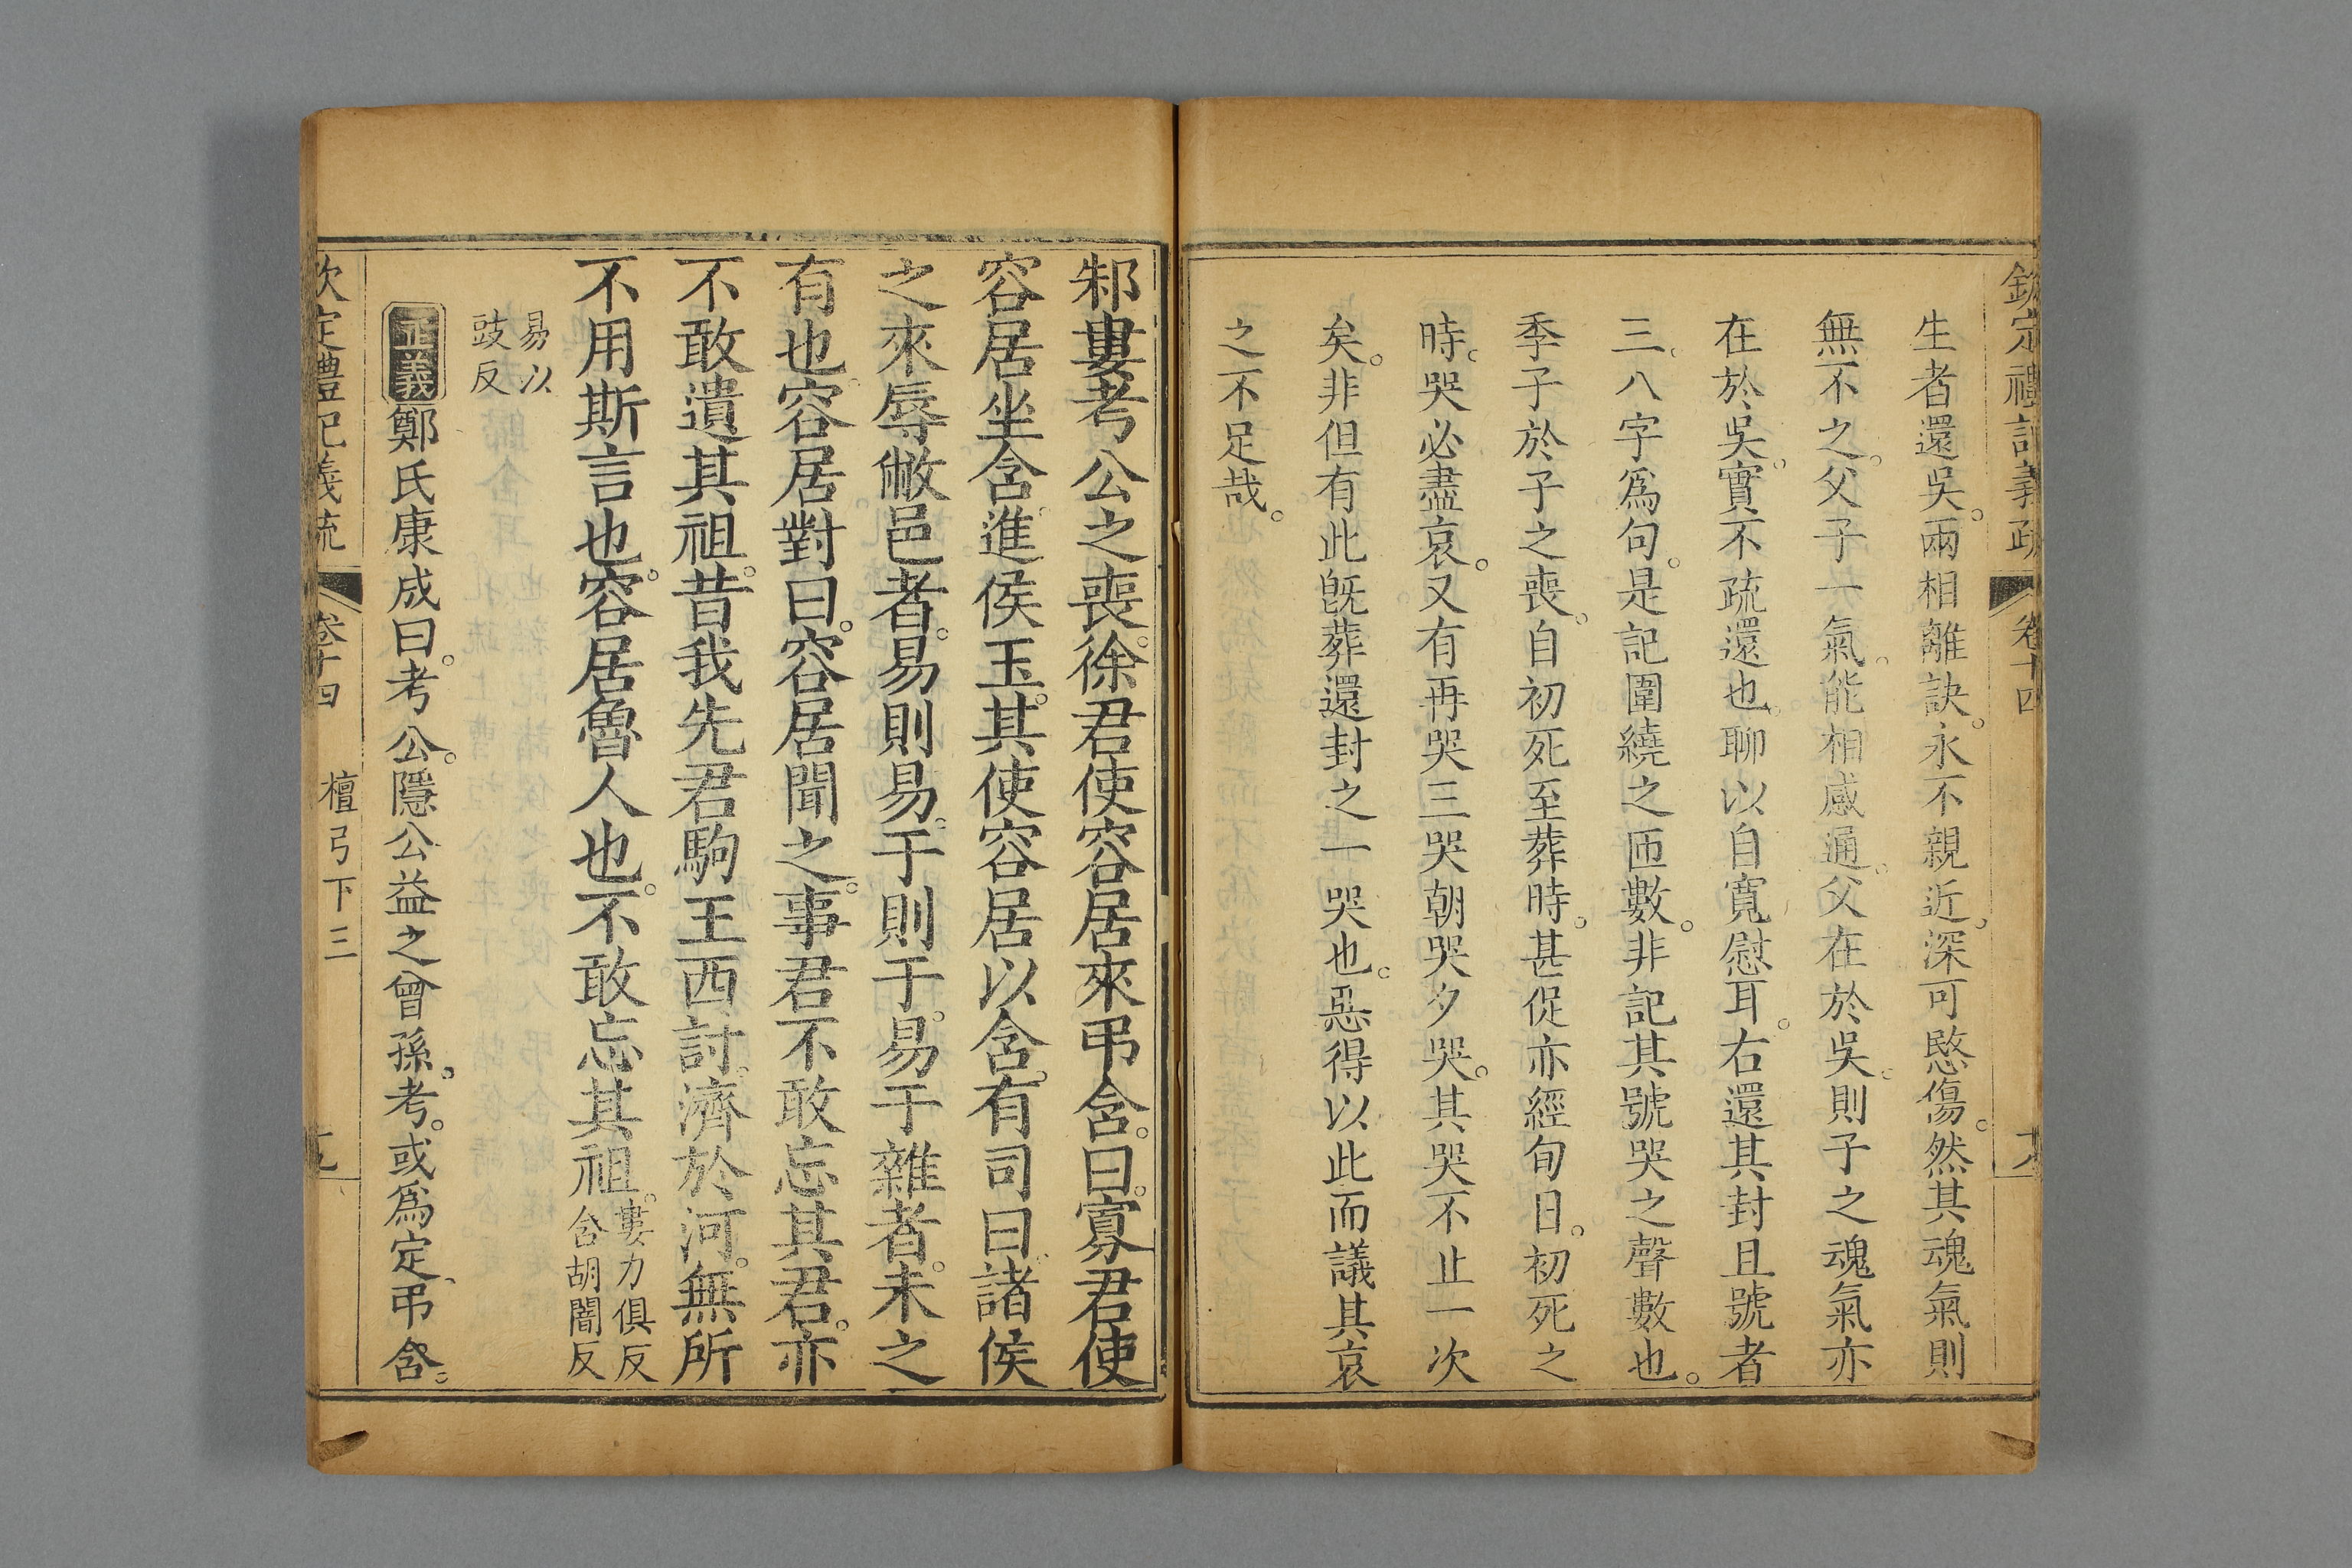 欽定禮記義疏 卷十四
生者還吳。兩相離訣。永不親近。深可愍傷。然其魂氣則
無不之。父子一氣。能相感通。父在於吳。則子之魂氣亦
在於吳。實不疏還也。聊以自寬慰耳。右還其封且號者
三。八字爲句。是記圍繞之匝數。非記其號哭之聲數也。
季子於子之喪。自初死至葬時。甚促亦經旬日。初死之
時。哭必盡哀。又有再哭三哭朝哭夕哭。其哭不止一次
矣。非但有此旣葬還封之一哭也。惡得以此而議其哀
之不足哉。
邾婁考公之喪。徐君使容居來弔含。曰。寡君使
容居坐含。進侯玉。其使容居以含。有司曰。諸侯
之來辱敝邑者。易則易。于則于。易于雜者。未之
有也。容居對曰。容居聞之。事君不敢忘其君。亦
不敢遺其祖。昔我先君駒王西討。濟於河。無所
不用斯言也。容居魯人也。不敢忘其祖。婁力俱反
含胡闇反
易以
豉反
正義鄭氏康成曰。考公。隱公益之曾孫。考。或爲定、弔含。
欽定禮記義疏 卷十四 檀弓下三